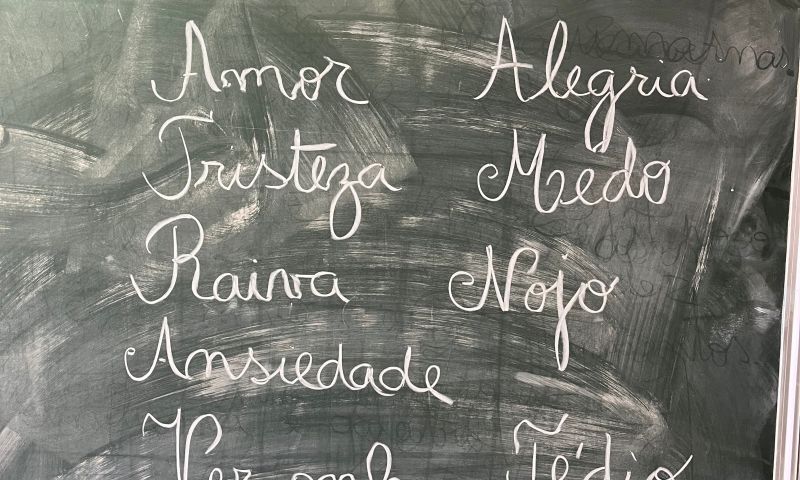 Amor Alegria
Tristeza Medo
Raiva Nojo
Ansiedade
Tédio